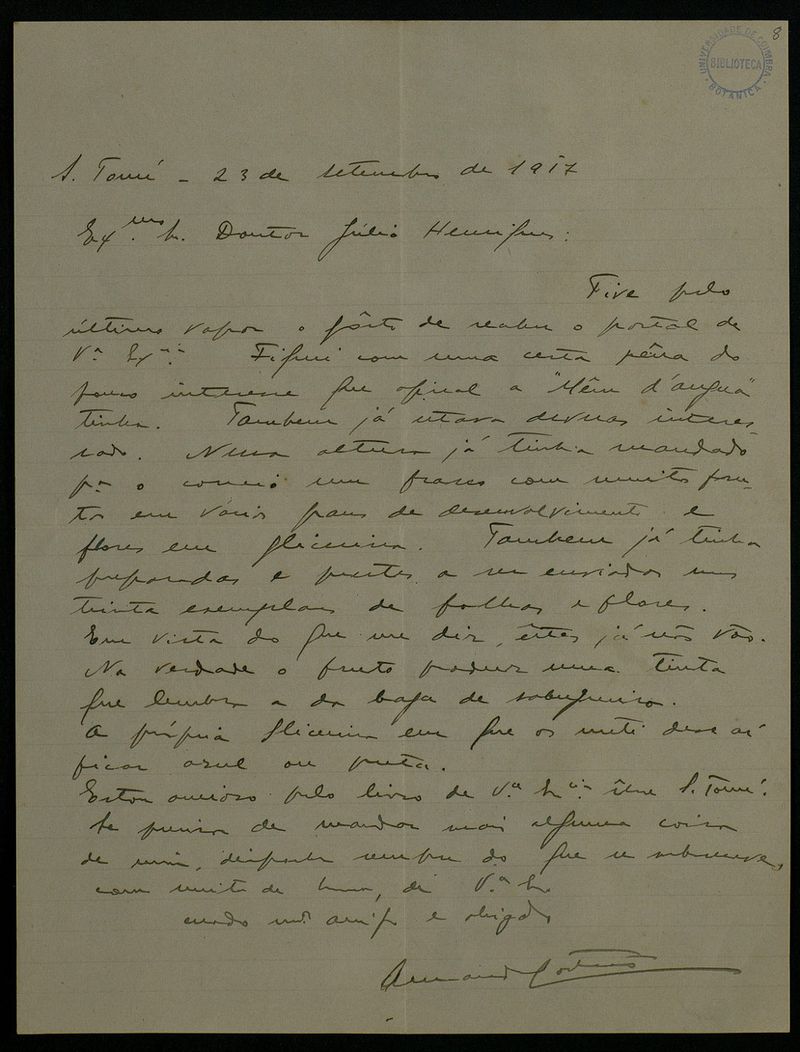 8
UNIVERSIDADE DE COIMBRA
BIBLIOTECA
BOTANICA
S. Tomé - 23 de setembro de 1917
Ex.mo Sr. Doutor Júlio Henriques:
Tive pelo
último vapor o gôsto de receber o postal de
V.ª Ex.cia Fiquei com uma certa pêna do
pouco interesse que afinal a "Mêm d'angua"
tinha. Tambem já estava deveras interes-
sado. Nessa altura já tinha mandado
p.ª o correio um frasco com muitos fru-
tos em vários graus de desenvolvimento e
flores em glicerina. Tambem já tinha
preparadas e prestes a ser enviados uns
trinta exemplares de folhas e flores.
Em vista do que me diz, êstes já não vão.
Na verdade o fruto produz uma tinta
que lembra a da baga de sabugueiro.
A própria glicerina em que os meti deve aí
ficar azul ou preta.
Estou ancioso pelo livro de V.ª sôbre S. Tomé.
Se precisa de mandar mais alguma coisa
de mim, disponha sempre do que se subscreve,
com muita de V.ª
criado m.to amigo e obrigado
Armando Cortesão